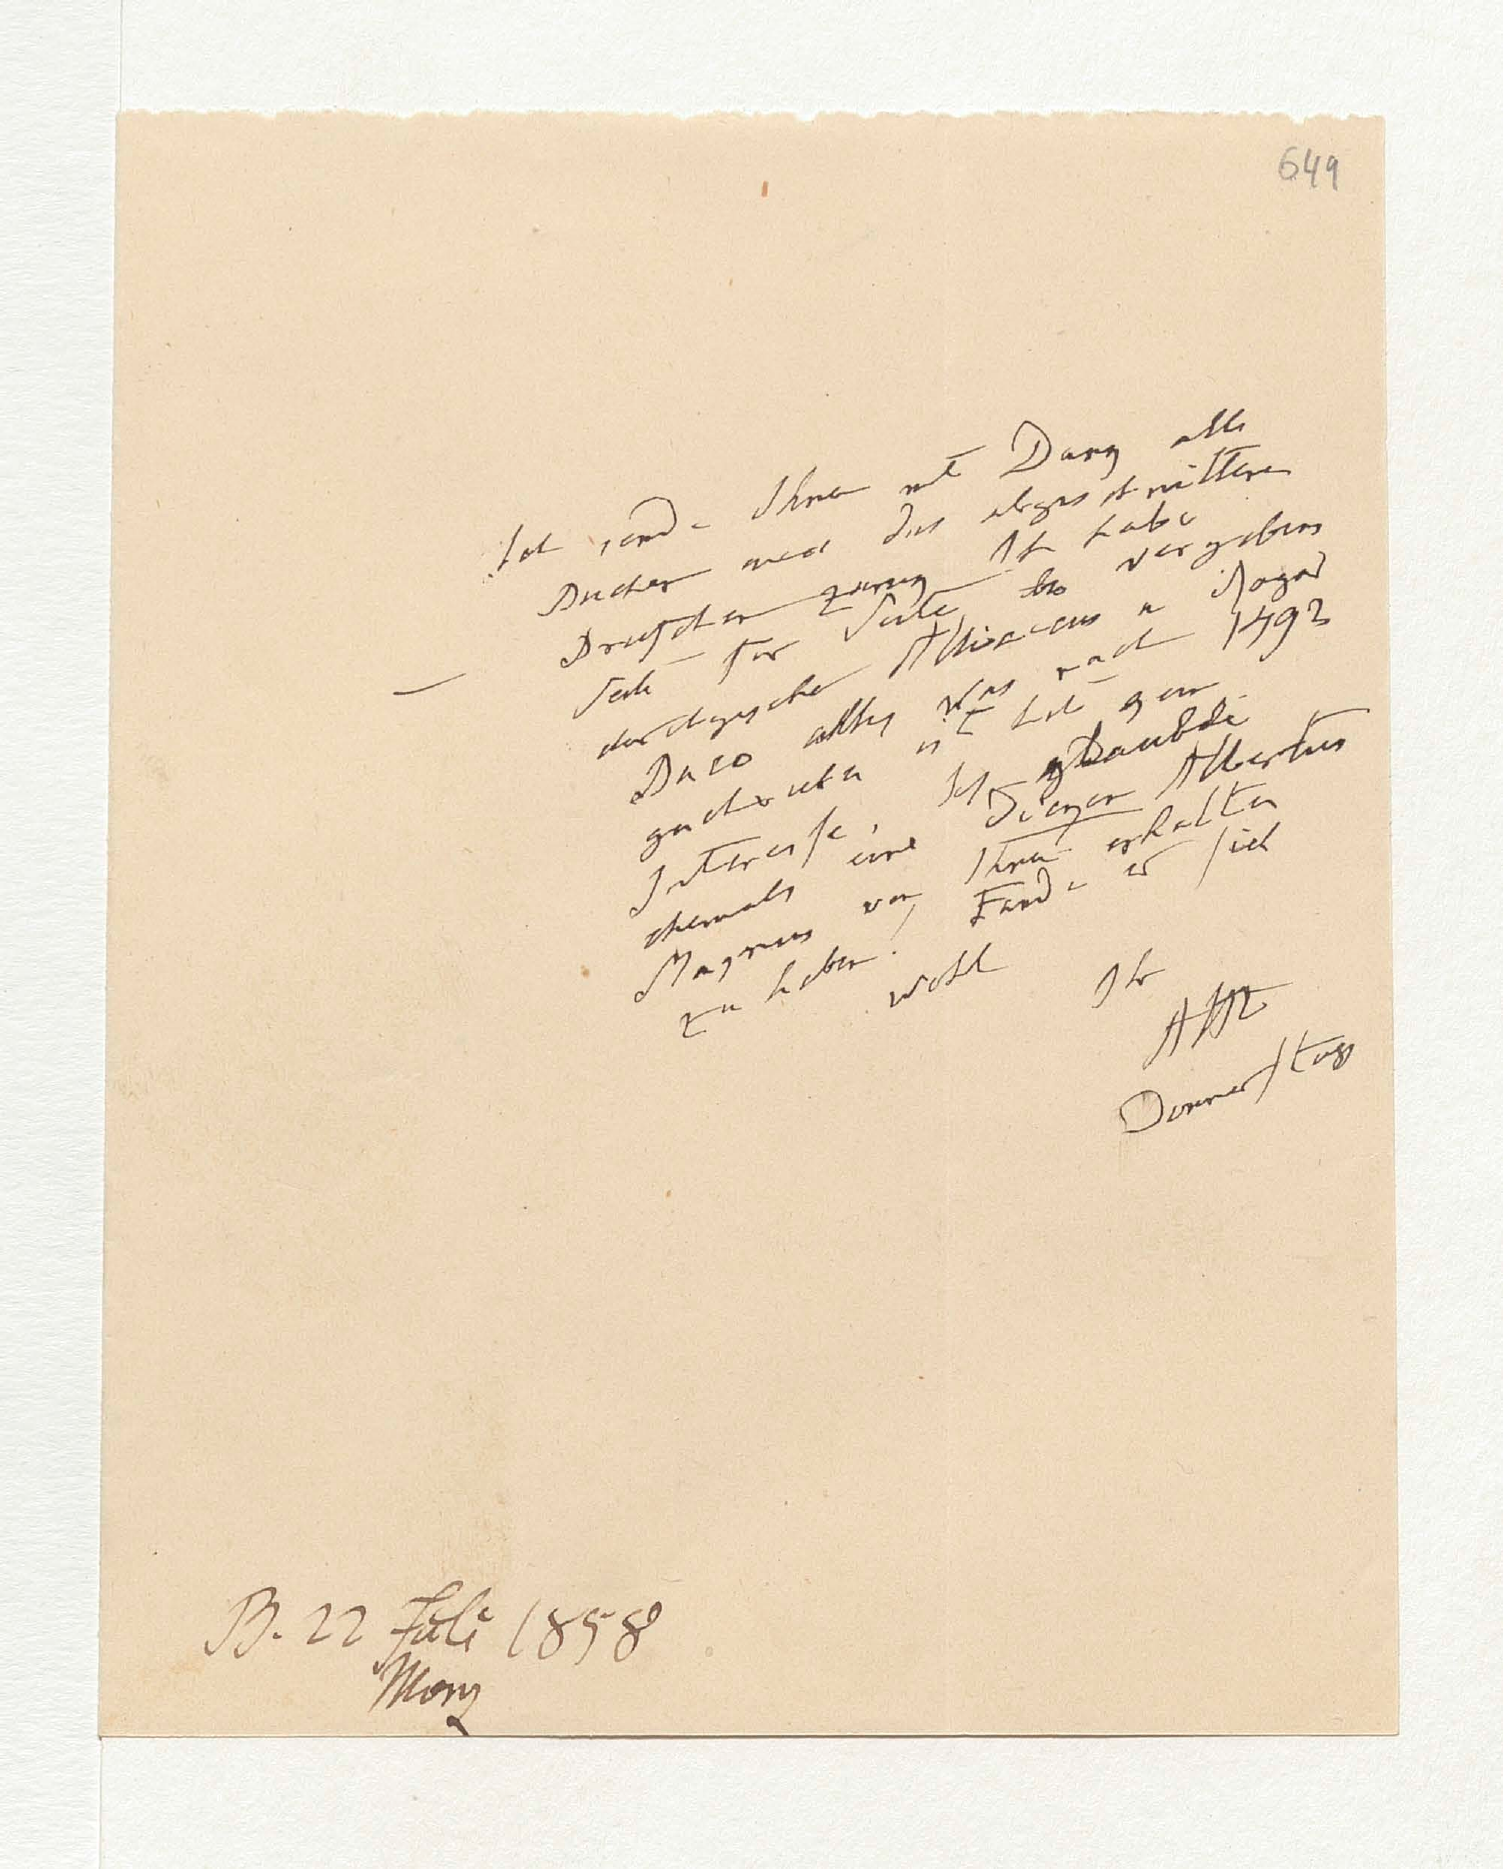 649
Ich sende Ihnen mit Dank alle
Bücher und die abgeschnittenen
Deutschen zurück Ich habe
Seite für Seite so vergebens
durchgesehen Alliacus u Roger
Baco alles was nach 1492
gedruckt ist hat kein
Interesse, Ich glaubte
ehemals eine Wiener Albertus
Magnus von Ihnen erhalten
zu haben! Ende er sich
wohl
Ihr
AHt
Donnerstag
B. 22 Juli 1858